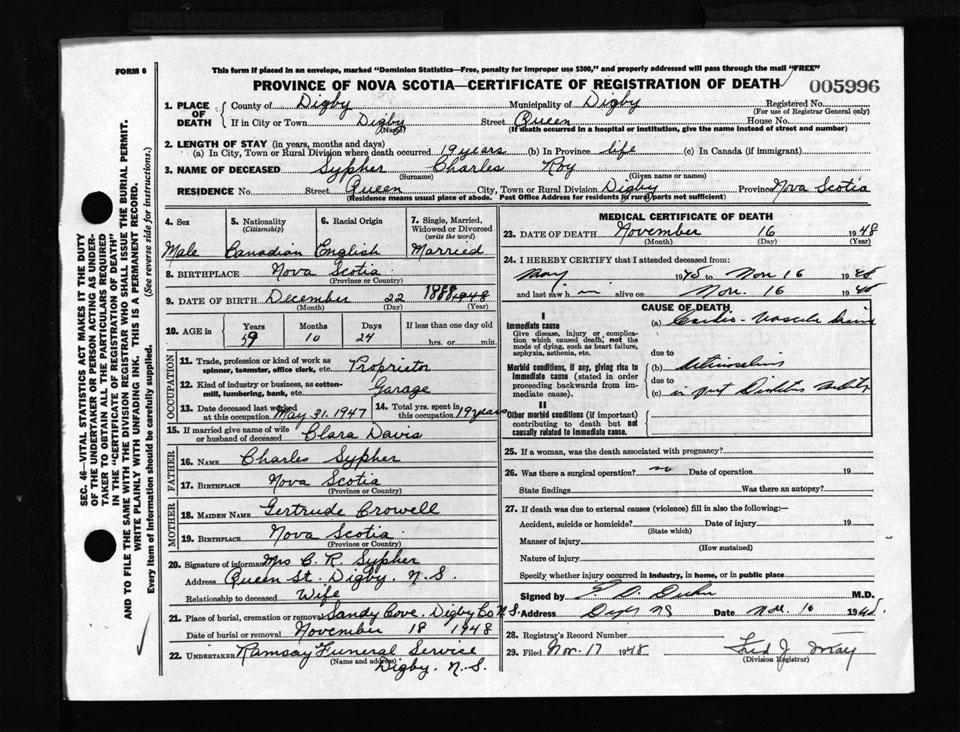 FORM 6
This form if placed in an envelope, marked "Dominion Statistics—Free, penalty for improper use $300," and properly addressed will pass through the mail "FREE"
PROVINCE OF NOVA SCOTIA—CERTIFICATE OF REGISTRATION OF DEATH
005996
1. PLACE OF DEATH
County of Digby Municipality of Digby Registered No.
(For use of Registrar General only)
If in City or Town Digby Street Queen House No.
(Name) (If death occurred in a hospital or institution, give the name instead of street and number)
2. LENGTH OF STAY (in years, months and days)
(a) In City, Town or Rural Division where death occurred 19 years (b) In Province life (c) In Canada (if immigrant)
3. NAME OF DECEASED Sypher Charles Roy
(Surname) (Given name or names)
RESIDENCE No. Street Queen City, Town or Rural Division Digby Province Nova Scotia
(Residence means usual place of abode. Post Office Address for residents in rural parts not sufficient)
4. Sex
Male
5. Nationality
(Citizenship)
Canadian
6. Racial Origin
English
7. Single, Married, Widowed or Divorced
(write the word)
Married
8. BIRTHPLACE Nova Scotia
(Province or Country)
9. DATE OF BIRTH December 22
(Month) (Day) (Year)
10. AGE in
Years Months Days If less than one day old
59 10 24 hrs. or min.
OCCUPATION
11. Trade, profession or kind of work as spinner, teamster, office clerk, etc. Proprietor
12. Kind of industry or business, as cotton-mill, lumbering, bank, etc. Garage
13. Date deceased last worked at this occupation May 31, 1947
14. Total yrs. spent in this occupation 19 years
15. If married give name of wife or husband of deceased Clara Davis
FATHER
16. NAME Charles Sypher
17. BIRTHPLACE Nova Scotia
(Province or Country)
MOTHER
18. MAIDEN NAME Gertrude Crowell
19. BIRTHPLACE Nova Scotia
(Province or Country)
20. Signature of informant Mrs C. R. Sypher
Address Queen St. Digby. N.S.
Relationship to deceased Wife
21. Place of burial, cremation or removal Sandy Cove. Digby Co N.S.
Date of burial or removal November 18 1948
22. UNDERTAKER Ramsay Funeral Service
(Name and address) Digby. N.S.
MEDICAL CERTIFICATE OF DEATH
23. DATE OF DEATH November 16 1948
(Month) (Day) (Year)
24. I HEREBY CERTIFY that I attended deceased from:
May 1945 to Nov 16 1948
and last saw h im alive on Nov. 16 1948
CAUSE OF DEATH
I
Immediate cause
Give disease, injury or complication which caused death, not the mode of dying, such as heart failure, asphyxia, asthenia, etc.
(a) Cardio-Vascular
due to
Morbid conditions, if any, giving rise to immediate cause (stated in order proceeding backwards from immediate cause).
(b)
due to
(c)
II
Other morbid conditions (if important) contributing to death but not causally related to immediate cause.
25. If a woman, was the death associated with pregnancy?
26. Was there a surgical operation? no Date of operation 19
State findings Was there an autopsy?
27. If death was due to external causes (violence) fill in also the following:—
Accident, suicide or homicide? Date of injury 19
(State which)
Manner of injury
(How sustained)
Nature of injury
Specify whether injury occurred in industry, in home, or in public place
Signed by M.D.
Address Digby NS Date Nov. 16 1948.
28. Registrar's Record Number
29. Filed Nov. 17 1948 Fred J. May
(Division Registrar)
SEC. 46—VITAL STATISTICS ACT MAKES IT THE DUTY
OF THE UNDERTAKER OR PERSON ACTING AS UNDERTAKER TO OBTAIN ALL THE PARTICULARS REQUIRED
IN THE "CERTIFICATE OF REGISTRATION OF DEATH"
AND TO FILE THE SAME WITH THE DIVISION REGISTRAR WHO SHALL ISSUE THE BURIAL PERMIT.
WRITE PLAINLY WITH UNFADING INK. THIS IS A PERMANENT RECORD.
Every item of information should be carefully supplied. (See reverse side for instructions.)